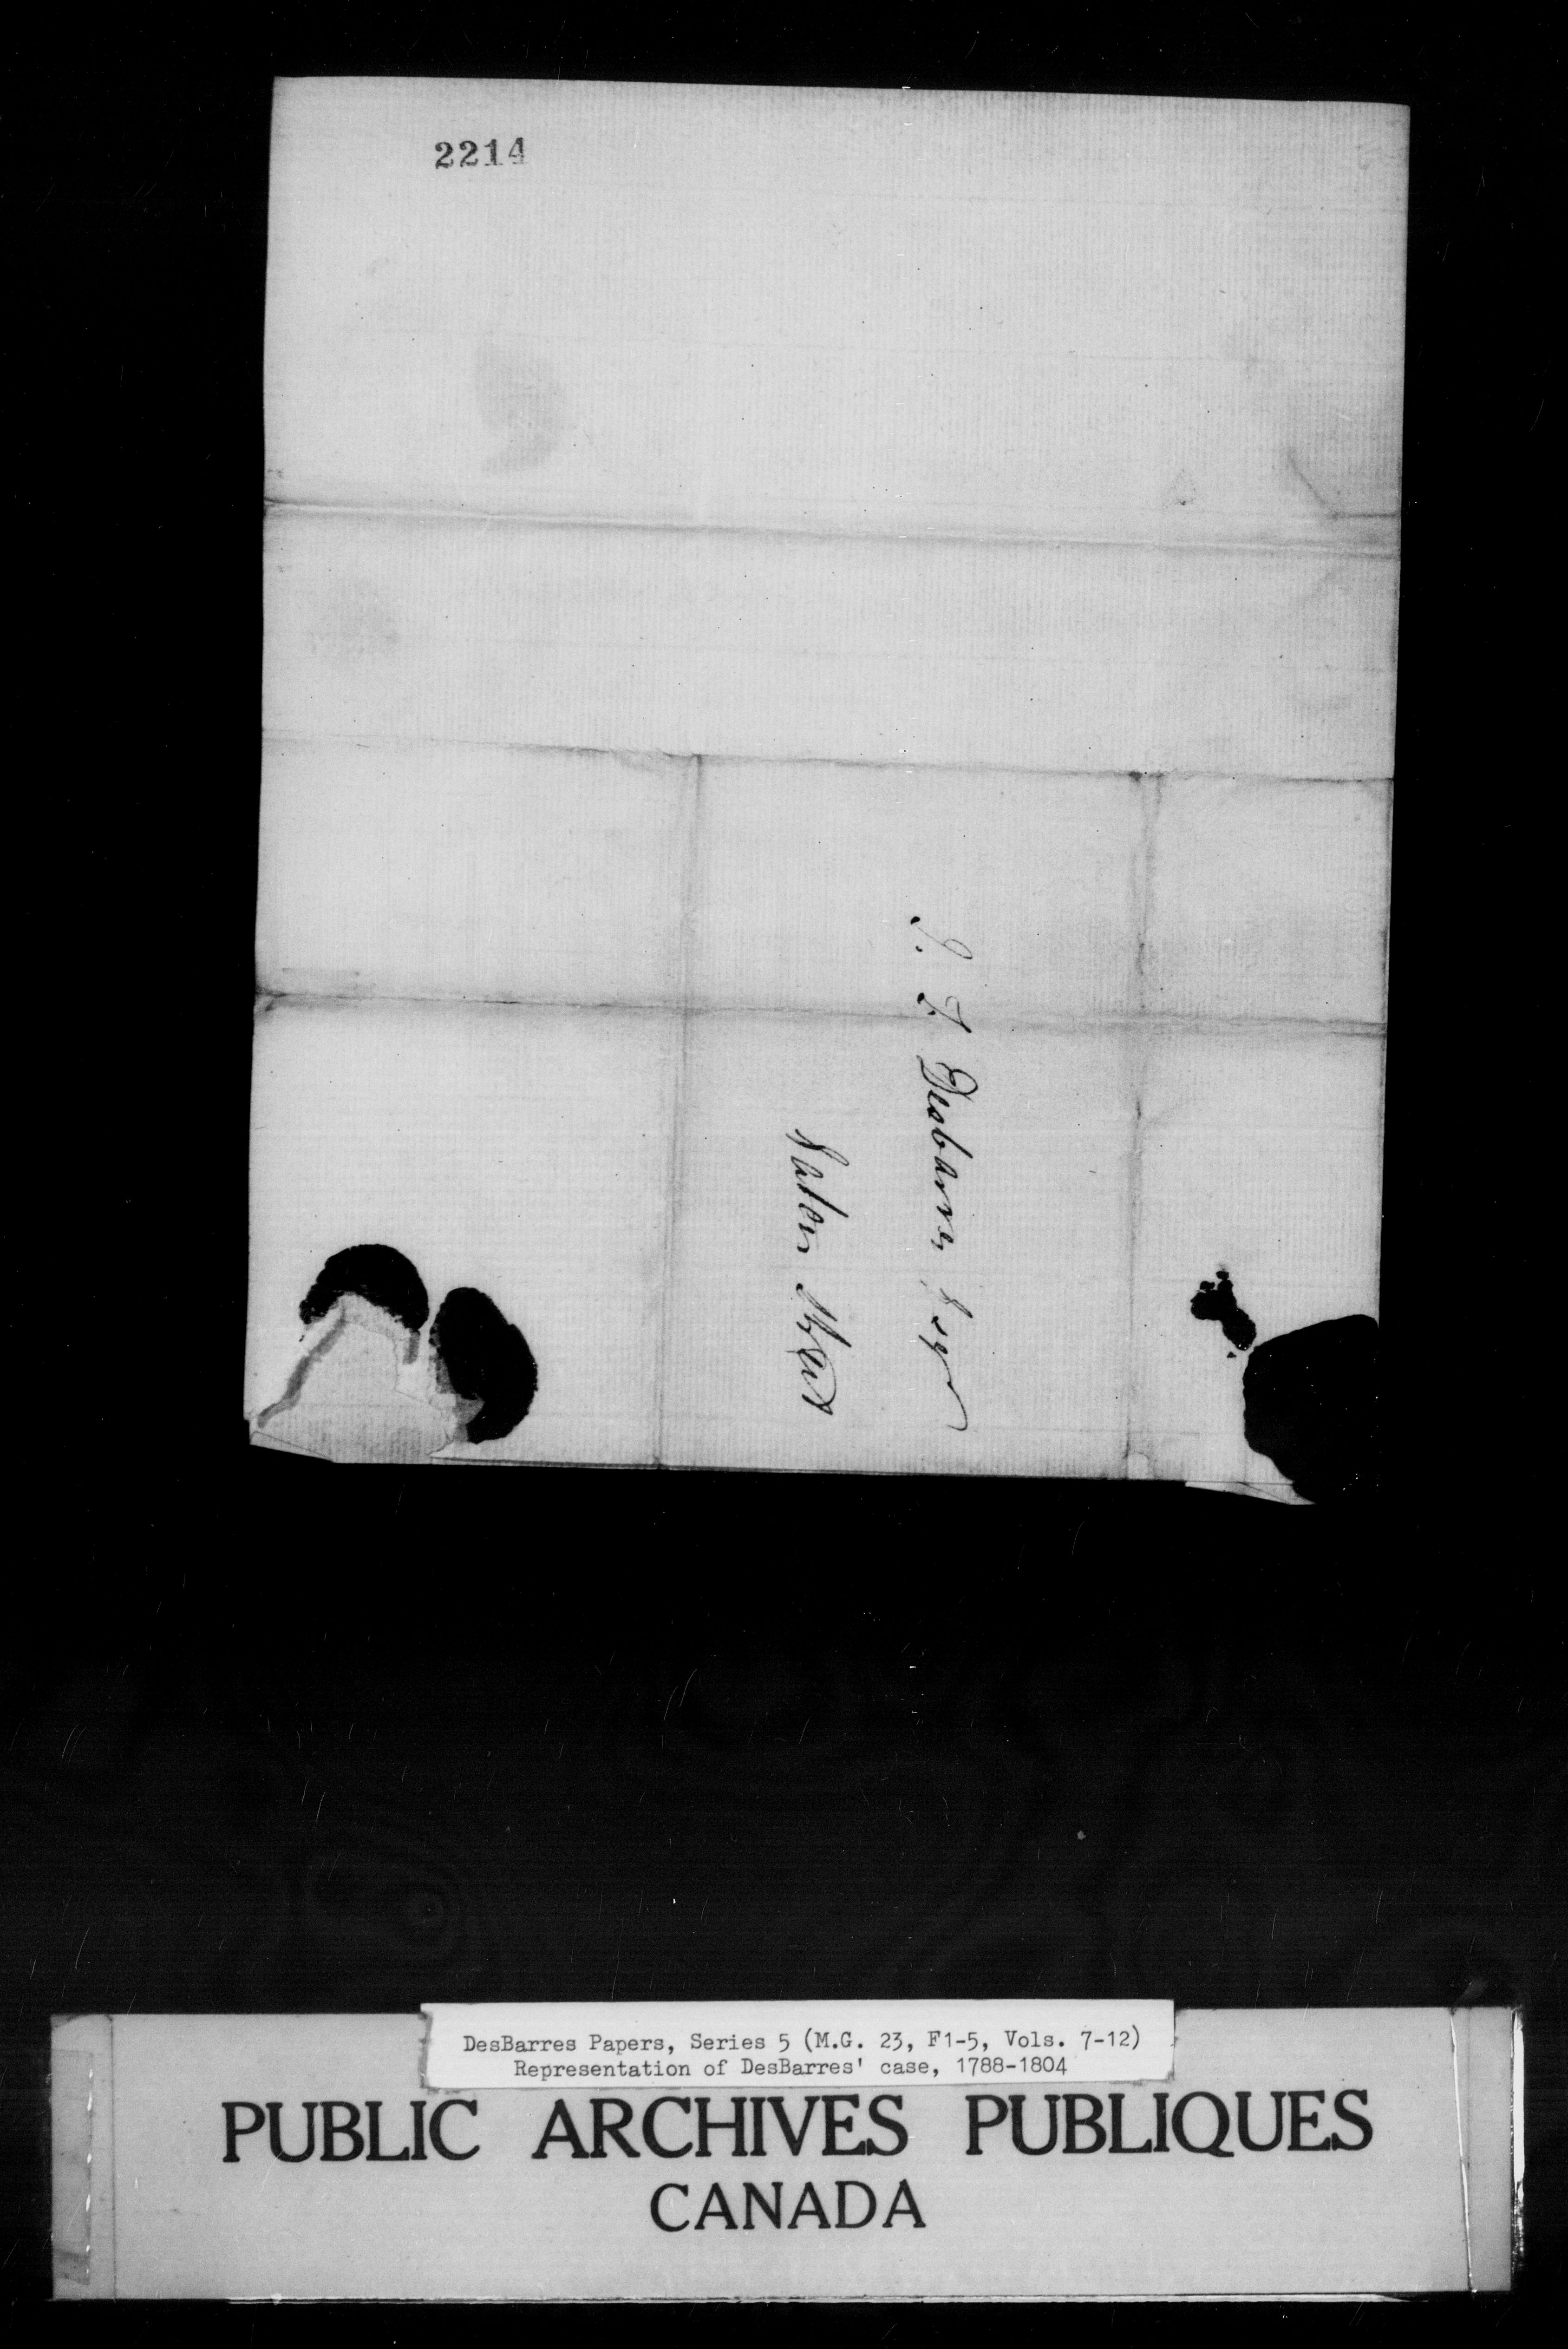 2214
J. F. Desbarres Esqr
Street
DesBarres Papers, Series 5 (M.G. 23, F1-5, Vols. 7-12)
Representation of DesBarres' case, 1788-1804
PUBLIC ARCHIVES PUBLIQUES
CANADA